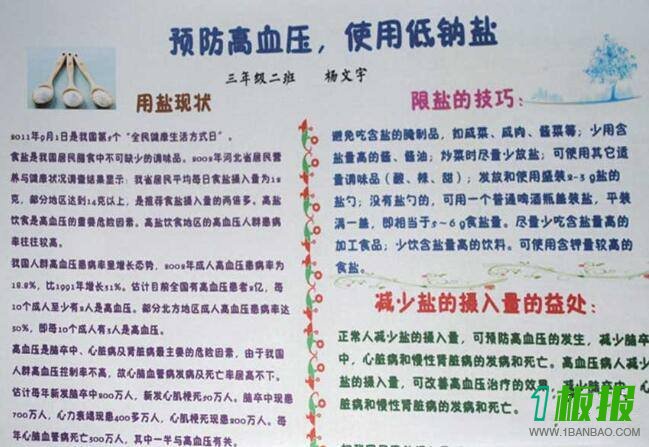 预防高血压，使用低钠盐
三年级二班 杨文宇
用盐现状
2011年9月1日是我国第5个“全民健康生活方式日”。
食盐是我国居民膳食中不可缺少的调味品。2002年河北省居民营
养与健康状况调查结果显示：我省居民平均每日食盐摄入量为12
克，部分地区达到14克以上，是推荐食盐摄入量的两倍多。高盐
饮食是高血压的重要危险因素。高盐饮食地区的高血压人群患病
率往往较高。
我国人群高血压患病率呈增长态势，2002年成人高血压患病率为
18.8%，比1991年增长31%。估计目前全国有高血压患者2亿，每
10个成人至少有2人是高血压。部分北方地区成人高血压患病率达
50%，即每10个成人有5人是高血压。
高血压是脑卒中、心脏病及肾脏病最主要的危险因素，由于我国
人群高血压控制率不高，故心脑血管病发病及死亡率居高不下。
估计每年新发脑卒中200万人，新发心肌梗死50万人。脑卒中现患
700万人，心力衰竭现患400多万人，心肌梗死现患200万人。每
年心脑血管病死亡300万人，其中一半与高血压有关。
限盐的技巧：
避免吃含盐的腌制品，如咸菜、咸肉、酱菜等；少用含
盐量高的酱、酱油；炒菜时尽量少放盐；可使用其它适
量调味品（酸、辣、甜）；发放和使用盛装2-3g的盐
盐勺；没有盐勺的，可用一个普通啤酒瓶盖装盐，平装
满一盖，即相当于5~6g食盐量。尽量少吃含盐量高的
加工食品；少饮含盐量高的饮料。可使用含钾量较高的
食盐。
减少盐的摄入量的益处：
正常人减少盐的摄入量，可预防高血压的发生，减少脑卒
中，心脏病和慢性肾脏病的发病和死亡。高血压病人减少
盐的摄入量，可改善高血压治疗的效果，减少脑卒中、心
脏病和慢性肾脏病的发病和死亡。
1板报
WWW.1BANBAO.COM